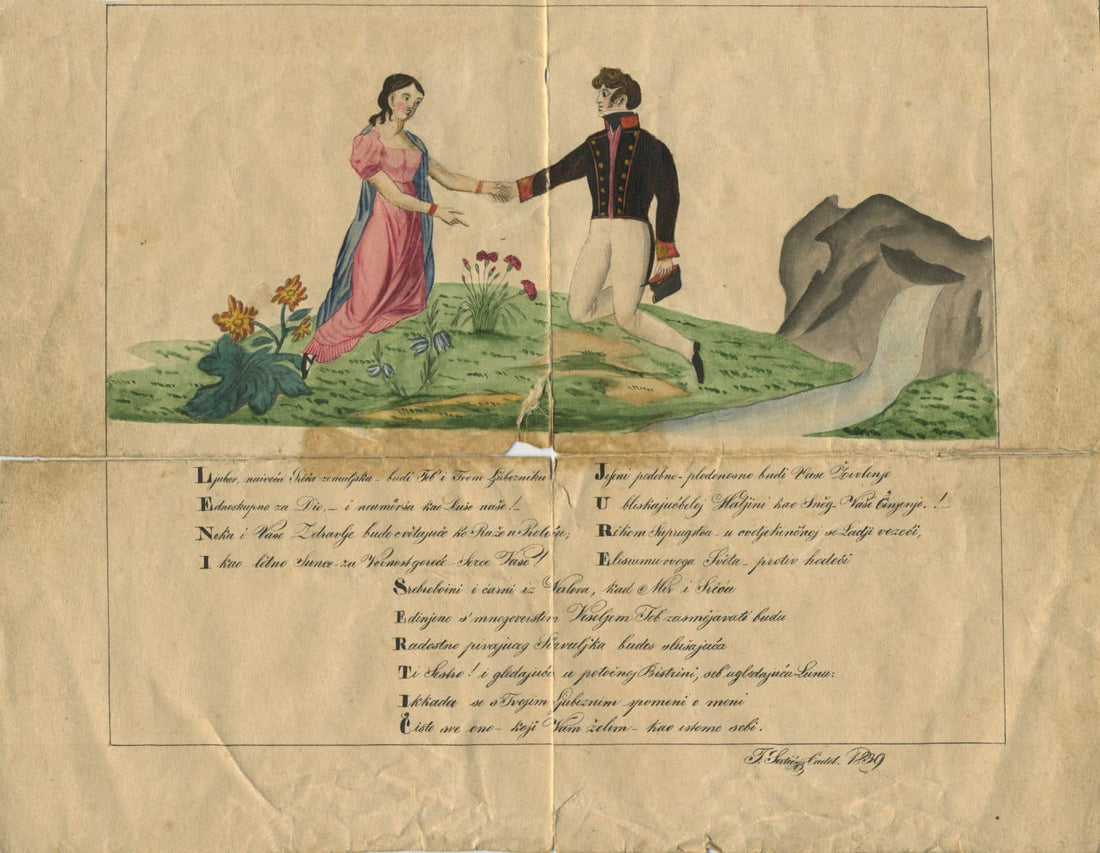 Ljubav, naiveća Srića zemaljska - budi Teb' i Tvom Ljubezniku
Ednoskupno za Dio, - i neumèrsa kao Duše naše! -
Neka i Vaše Zdravlje bude cvëtajuće ko Ruže u Prolëću;
I kao lëtno Sunce - za Vërnost goreće - Serce Vaše!
Jeseni podobno - plodonosno budi Vaše
U bliskajućbeloj Haljini kao Snëg - Vaše Činjenje. !
Rikom Suprugstva - u cvëtjekinčenoj se Ladji vozeći,
Elisiumu ovoga Svëta - protiv hodeći
Srebroboini i čarni iz Valova, kad Mir i Srića
Edinjeno s' mnogoverstim Veseljem Teb' zasmëjavati budu
Radostno pivajućeg Slavuljka budeš slušajuća
Ti Sestro! i gledajuća u potočnoj Bistrini, seb' ugledajuću Lunu:
I kkada se s Tvojim Ljubeznim spomeni o meni
Čisto sve ono - koji Vam želim - kao istome sebi.
Cadet. 1839